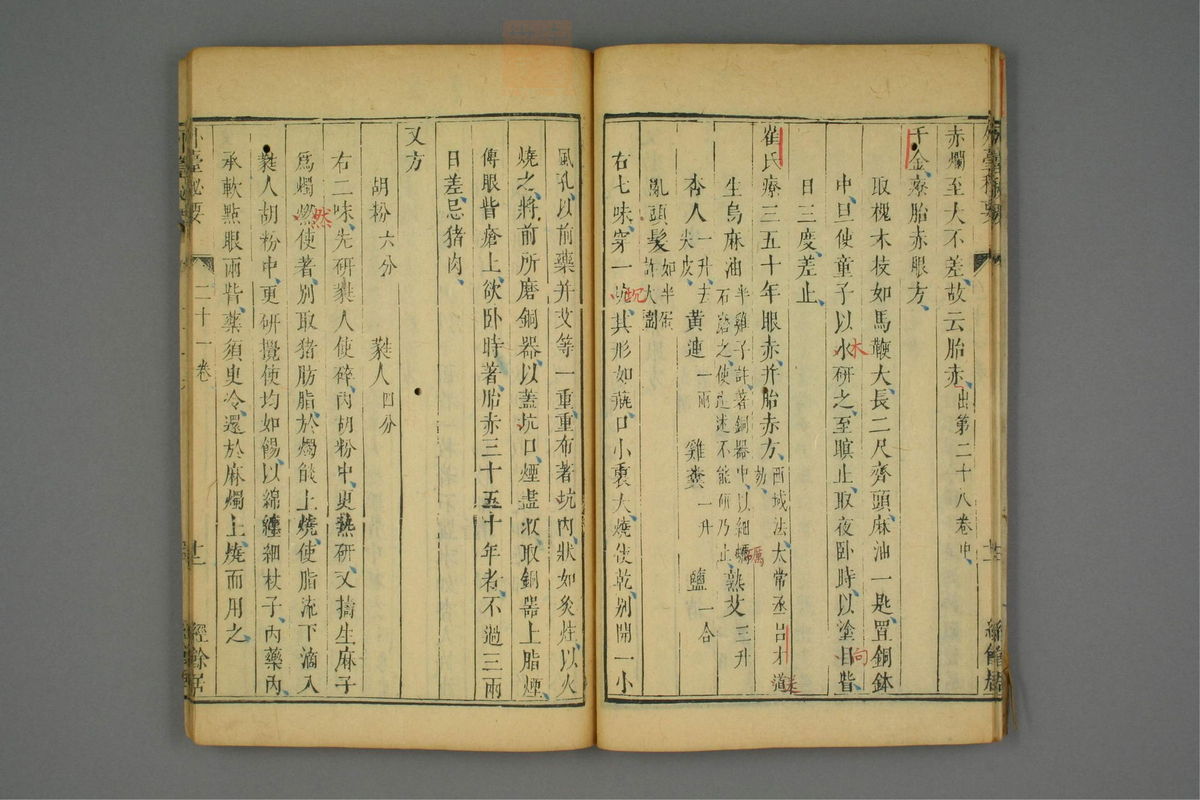 赤爛至大不差故云胎赤出第二十八卷中
千金療胎赤眼方
取槐木枝如馬鞭大長二尺齊頭麻油一匙置銅鉢
中旦使童子以水研之至瞑止取夜卧時以塗目眥
木
向
日三度差止
崔氏療三五十年眼赤并胎赤方西域法太常丞呂才道
劾
差
生烏麻油半雞子許著銅器中以細蠣
石磨之使述不能研乃止熟艾三升
厲
杏人一升去尖皮黃連一兩雞糞一升鹽一合
亂頭髮如半蛋許大
右七味穿一坑其形如甕口小裏大燒使乾別開一小
坈
風孔以前藥并艾等一重重布著坑内狀如灸炷以火
燒之將前所磨銅器以蓋坑口煙盡收取銅器上脂煙
傅眼眥瘡上欲卧時著胎赤三十五十年者不過三兩
日差忌猪肉
又方
胡粉六分 蕤人四分
右二味先研蕤人使碎内胡粉中更熟研又擣生麻子
爲燭燃使著別取猪肪脂於燭燄上燒使脂流下滴入
然
蕤人胡粉中更研攪使均如餳以綿纏細杖子内藥内
承軟點眼兩眥藥須臾冷還於麻燭上燒而用之
外臺秘要 二十一卷 十二 經餘居